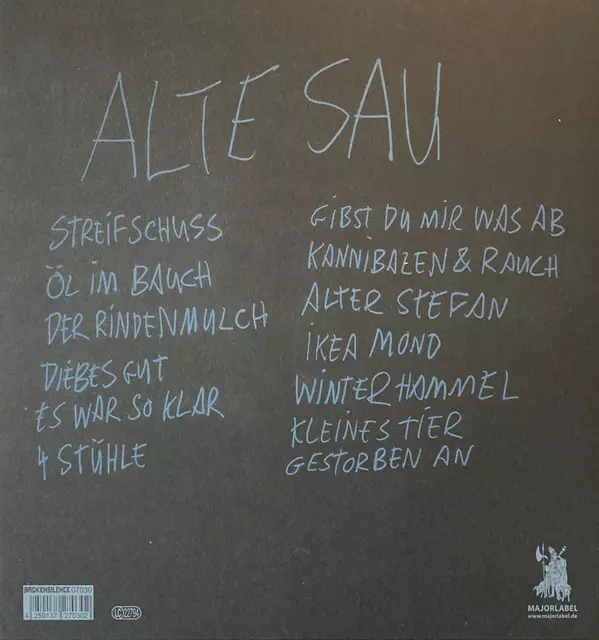 ALTE SAU
STREIFSCHUSS
ÖL IM BAUCH
DER RINDENMULCH
DIEBES GUT
ES WAR SO KLAR
4 STÜHLE
GIBST DU MIR WAS AB
KANNIBALEN & RAUCH
ALTER STEFAN
IKEA MOND
WINTERHAMMEL
KLEINES TIER
GESTORBEN AN
BROKENSILENCE 07030
4 250137 270302
LC 22794
MAJORLABEL
www.majorlabel.de